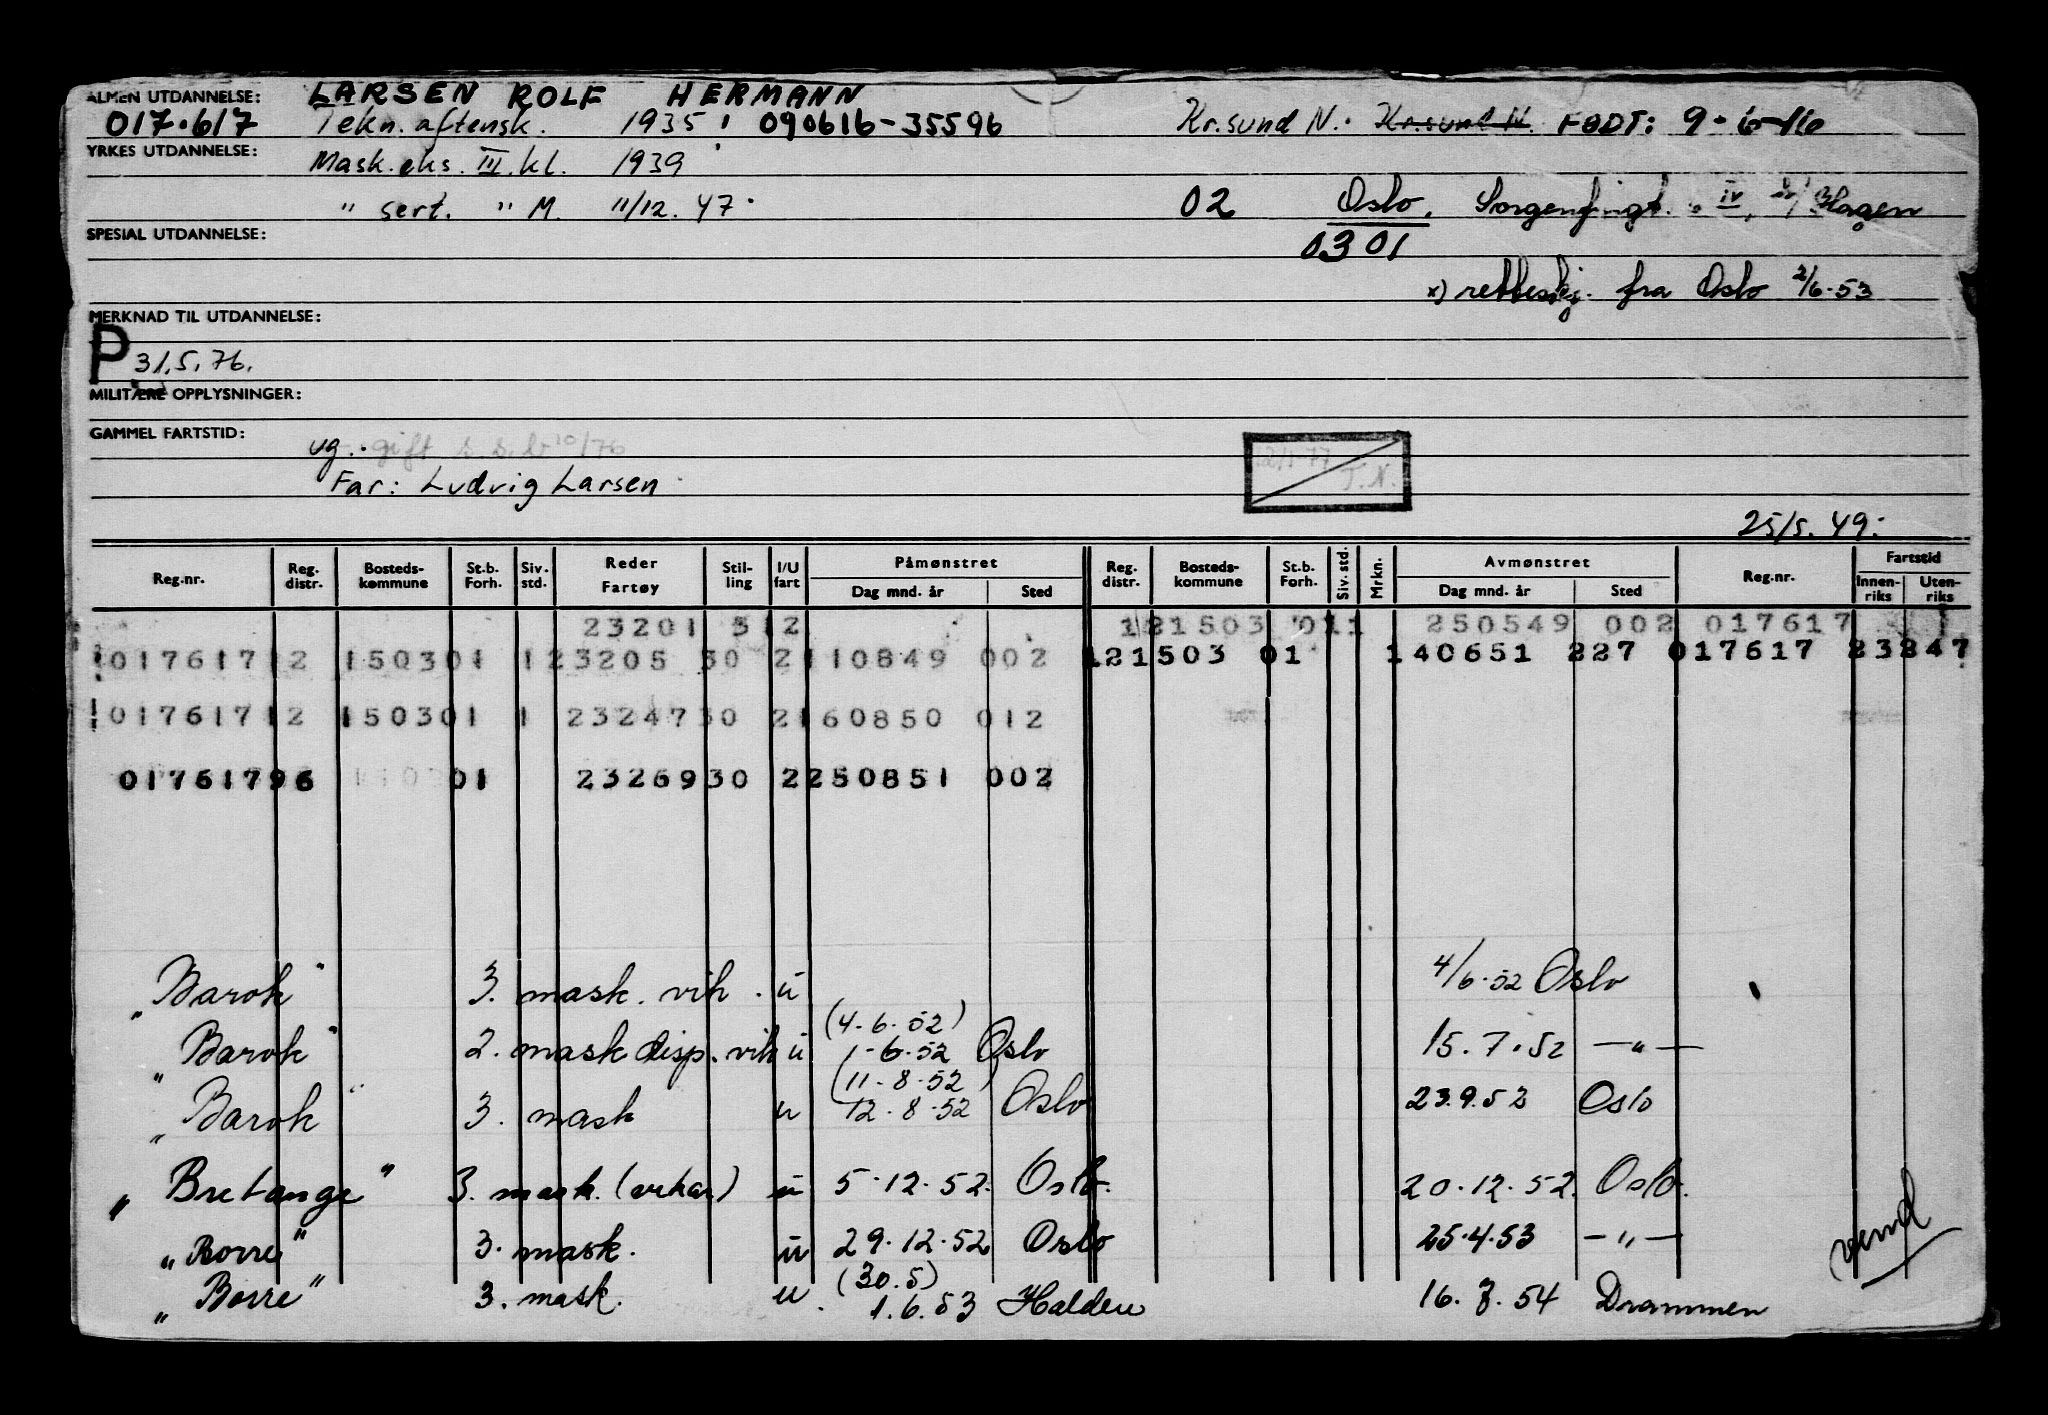 ALMEN UTDANNELSE: LARSEN ROLF HERMANN
017.617 Tekn. aftensk. 1935. 090616-35596 Kr.sund N. Kr.sund N. FØDT: 9-6-16
YRKES UTDANNELSE: Mask.eks. III. kl. 1939
" sert. " M. 11/12. 47. 02 Oslo. IV, Hagen
SPESIAL UTDANNELSE: 0301
x) fra Oslo 2/6-53
MERKNAD TIL UTDANNELSE:
P 31.5.76.
MILITÆRE OPPLYSNINGER:
GAMMEL FARTSTID: ug. gift
T.N.
Far: Ludvig Larsen
25/5. 49.
Reg.nr. Reg. distr. Bosteds-kommune St.b. Forh. Siv. std. Reder Fartøy Stil-ling I/U fart Påmønstret Dag mnd. år Sted Reg. distr. Bosteds-kommune St.b. Forh. Siv. std. Mrkn. Avmønstret Dag mnd. år Sted Reg.nr. Fartstid Innen-riks Uten-riks
23201 3 2 121503 011 250549 002 017617
017617 2 150301 123205 30 2 110849 002 121503 01 140651 227 017617 23247
017617 2 150301 1 23247 30 2 160850 012
017617 96 01 23269 30 2 250851 002
"Barok" 3. mask. vik. u 4/6-52 Oslo
(4-6-52)
"Barok" 2. mask disp. vik u 1-6-52 Oslo 15.7.52 —"—
(11-8-52)
"Barok" 3. mask u 12-8-52 Oslo 23.9.52 Oslo
"Bretange" 3. mask. (vikar) u 5-12-52. Oslo. 20.12.52. Oslo.
"Borre" 3. mask. u 29.12.52 Oslo 25.4.53 —"—
(30.5)
"Borre" 3. mask. u. 1.6.53 Halden 16.3.54 Drammen
vend